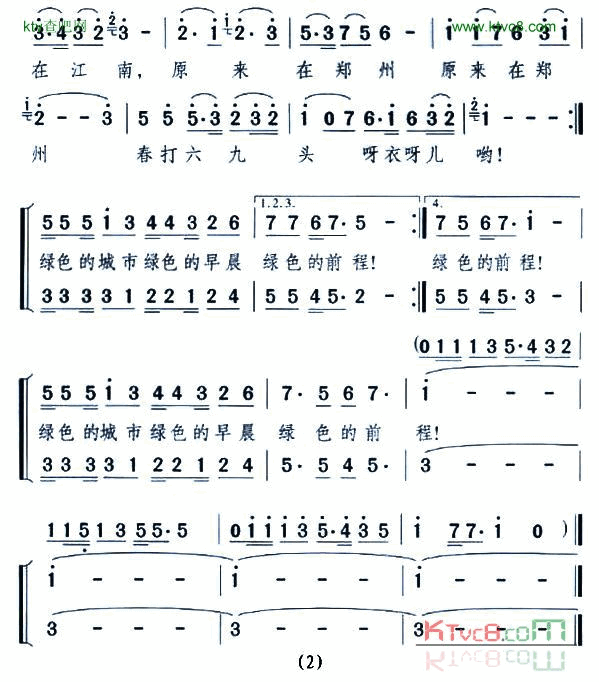 ktv查吧网 www.ktvc8.com
3·4 3 2 2 3 - 2· 1 2 2· 3 5·3 7 5 6 - 1 1 7 6 3
在江南, 原来在郑州 原来在郑
1 2 - - 3 5 5 5·3 2 3 2 1 0 7 6·1 6 3 2 2 1 - -
州 春打六九头 呀衣呀儿哟!
1.2.3. 4.
5 5 5 1 3 4 4 3 2 6 7 7 6 7· 5 - 7 5 6 7· 1 -
绿色的城市绿色的早晨 绿色的前程! 绿色的前程!
3 3 3 3 1 2 2 1 2 4 5 5 4 5· 2 - 5 5 4 5· 3 -
(0 1 1 1 3 5·4 3 2
5 5 5 1 3 4 4 3 2 6 7· 5 6 7 1 - - -
绿色的城市绿色的早晨 绿色的前程!
3 3 3 3 1 2 2 1 2 4 5· 5 4 5 3 - - -
1 1 5 1 3 5 5·5 0 1 1 1 3 5·4 3 5 1 7 7·1 0 )
1 - - - 1 - - - 1 - - -
3 - - - 3 - - - 3
KTvc8.com
(2)